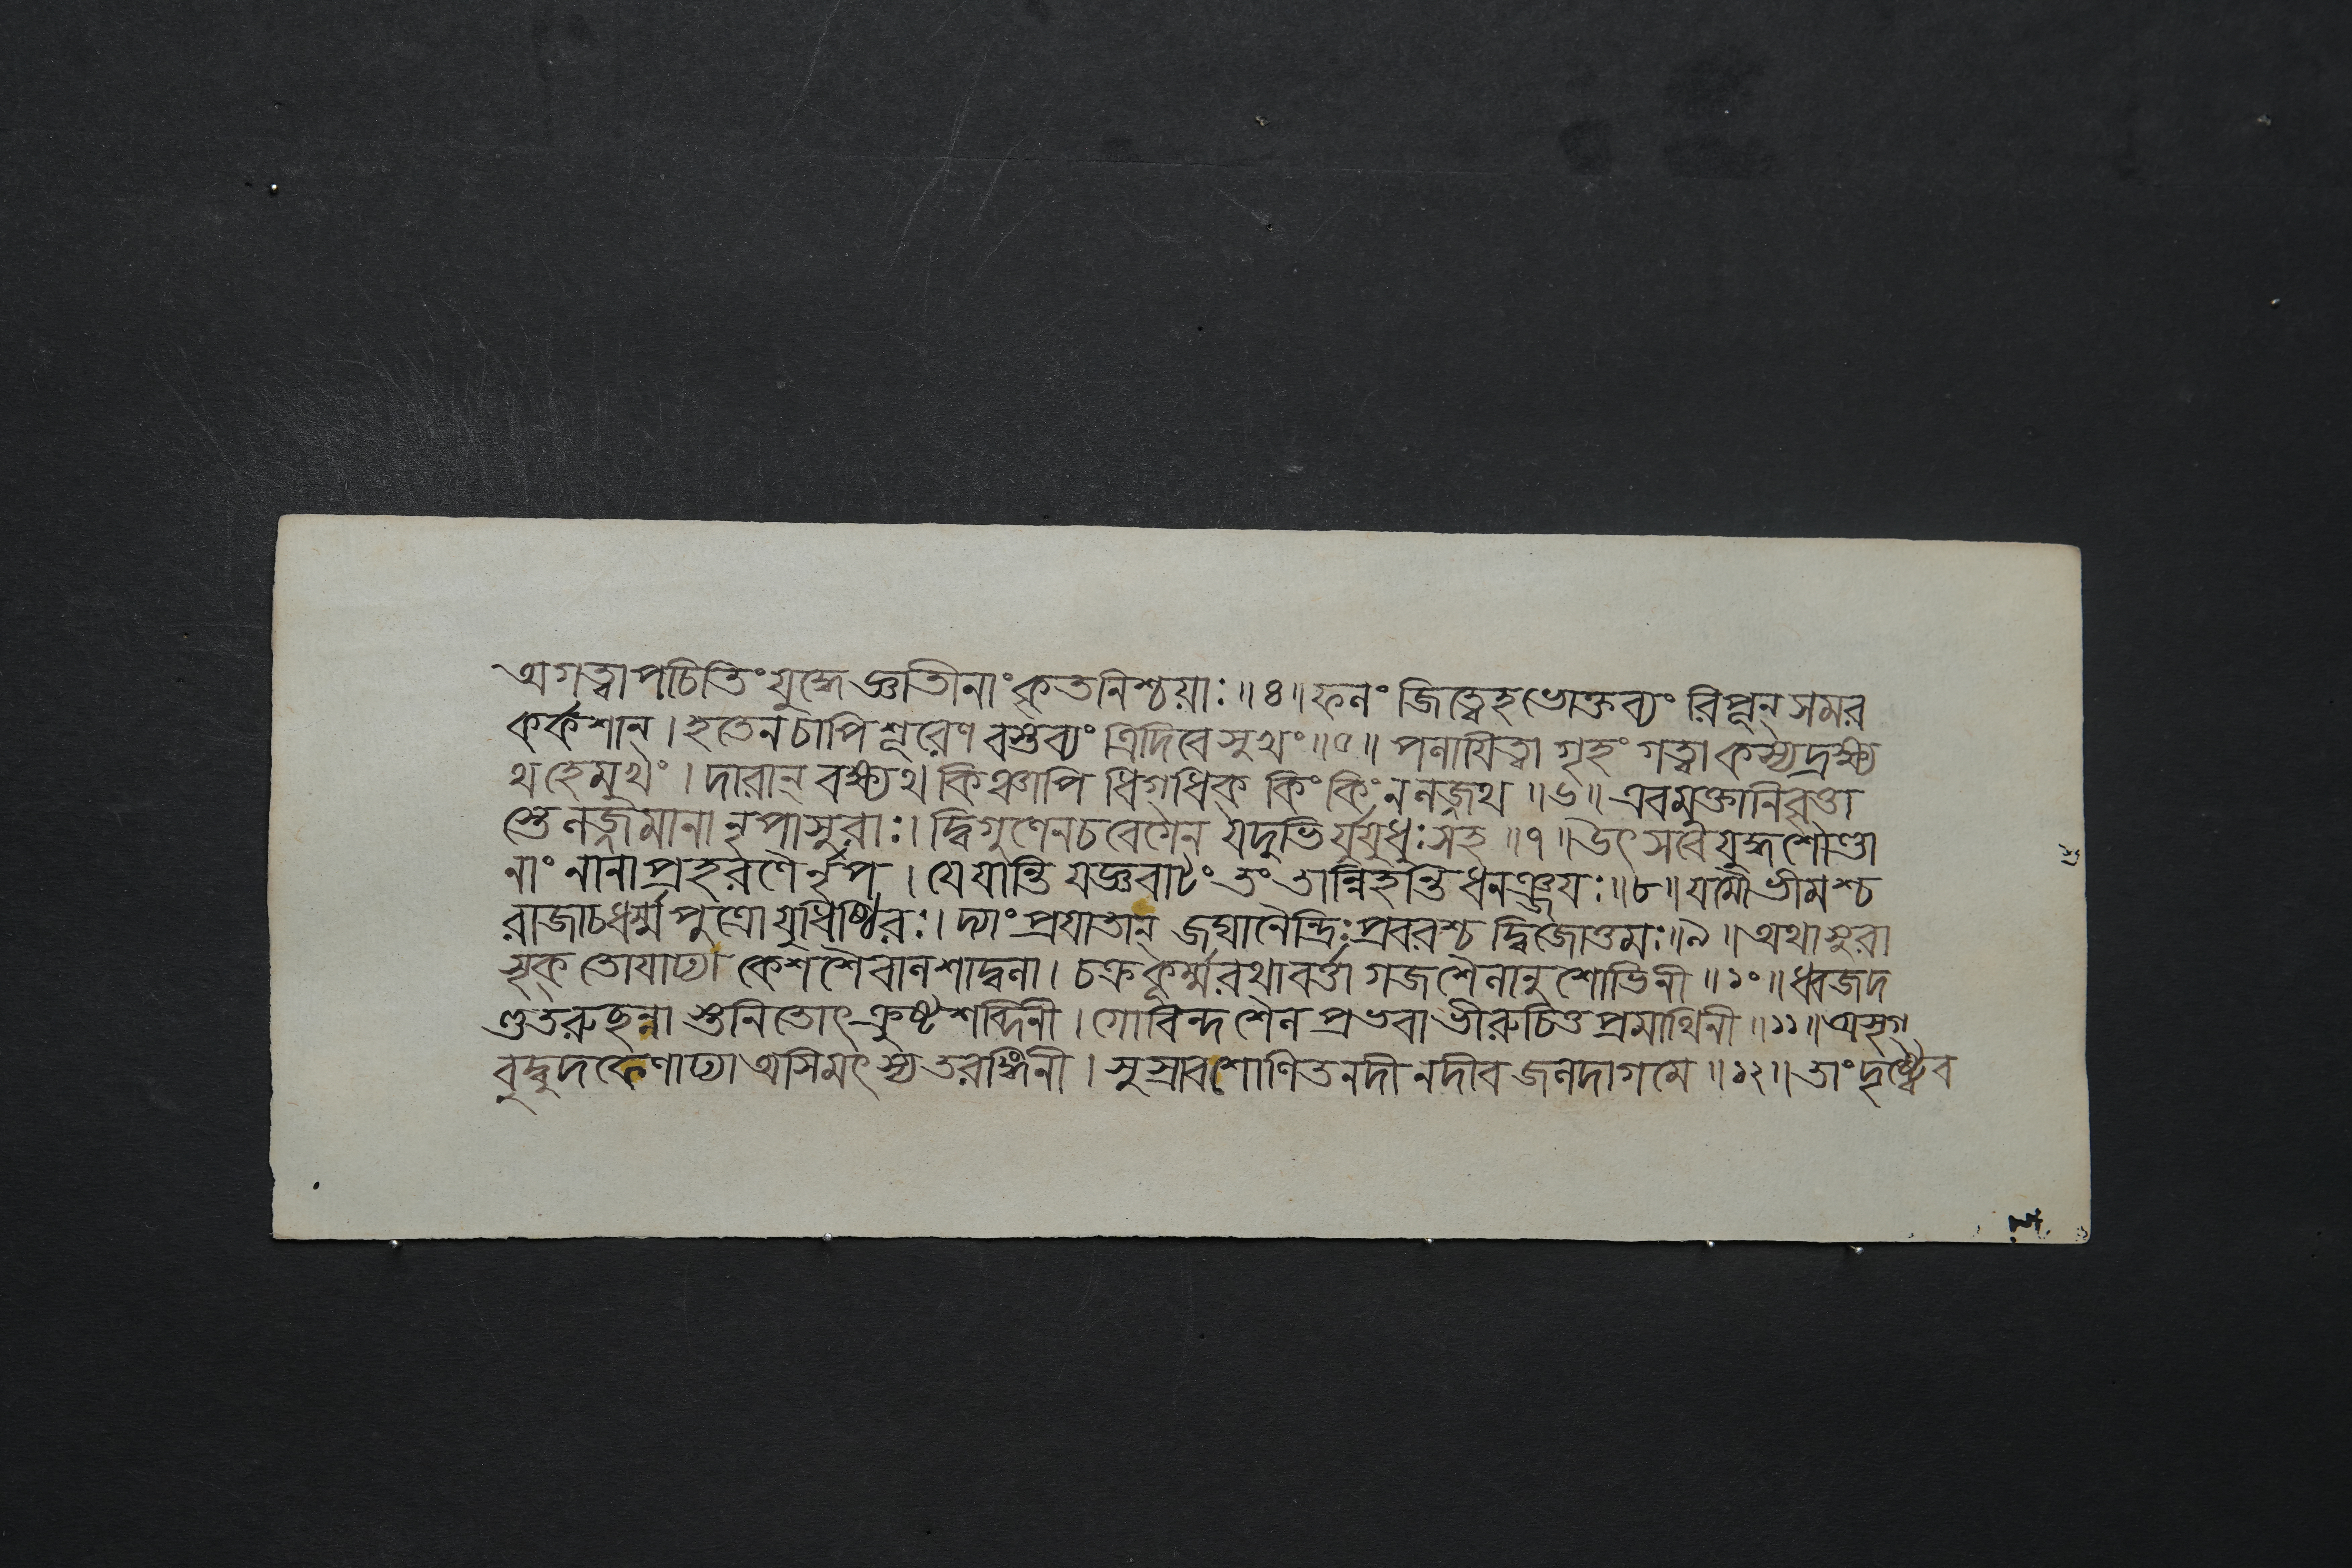 অগত্বাপচিতিংযুদ্ধেজ্ঞাতীনাংকৃতনিশ্চয়াঃ॥৪॥ফলং জিত্বেহভোক্তব্যং রিপূন্ সমর
কর্কশান্।হতেনচাপিশূরেণ বস্তব্যং ত্রিদিবে সুখং॥৫॥ পলায়িত্বা গৃহং গত্বা কস্যদ্রক্ষ্য
থহেমুখং। দারান্ বক্ষ্যথ কিঞ্চাপি ধিগ্ধিক্ কিং কিং নলজ্জথ॥৬॥ এবমুক্তানিবৃত্তা
স্তে লজ্জমানা নৃপাসুরাঃ। দ্বিগুণেনচবেগেন যদুভির্যুযুধুঃসহ॥৭॥উৎসবেযুদ্ধশৌণ্ডা
নাং নানাপ্রহরণৈর্নৃপ। যে যান্তি যজ্ঞবাটং তং তান্নিহন্তি ধনঞ্জয়ঃ॥৮॥যমৌভীমশ্চ
রাজাচধর্ম্মপুত্রোযুধিষ্ঠিরঃ। দ্যাং প্রযাতান্ জঘানৈন্দ্রিঃপ্রবরশ্চ দ্বিজোত্তমঃ॥৯॥ অথাসুরা
সৃক্ তোয়াঢ্যা কেশশৈবালশাদ্বলা। চক্রকূর্ম্মরথাবর্ত্তা গজশৈলানুশোভিনী॥১০॥ধ্বজদ
ণ্ডতরুছন্না স্তনিতোৎক্রুষ্টশব্দিনী। গোবিন্দশৈলপ্রভবাভীরুচিত্তপ্রমাথিনী॥১১॥অসৃগ্
বুদ্বুদফেণাঢ্যা অসিমৎস্যতরঙ্গিনী। সুস্রাবশোণিতনদীনদীব জলদাগমে॥১২॥তাংদৃষ্ট্বৈব